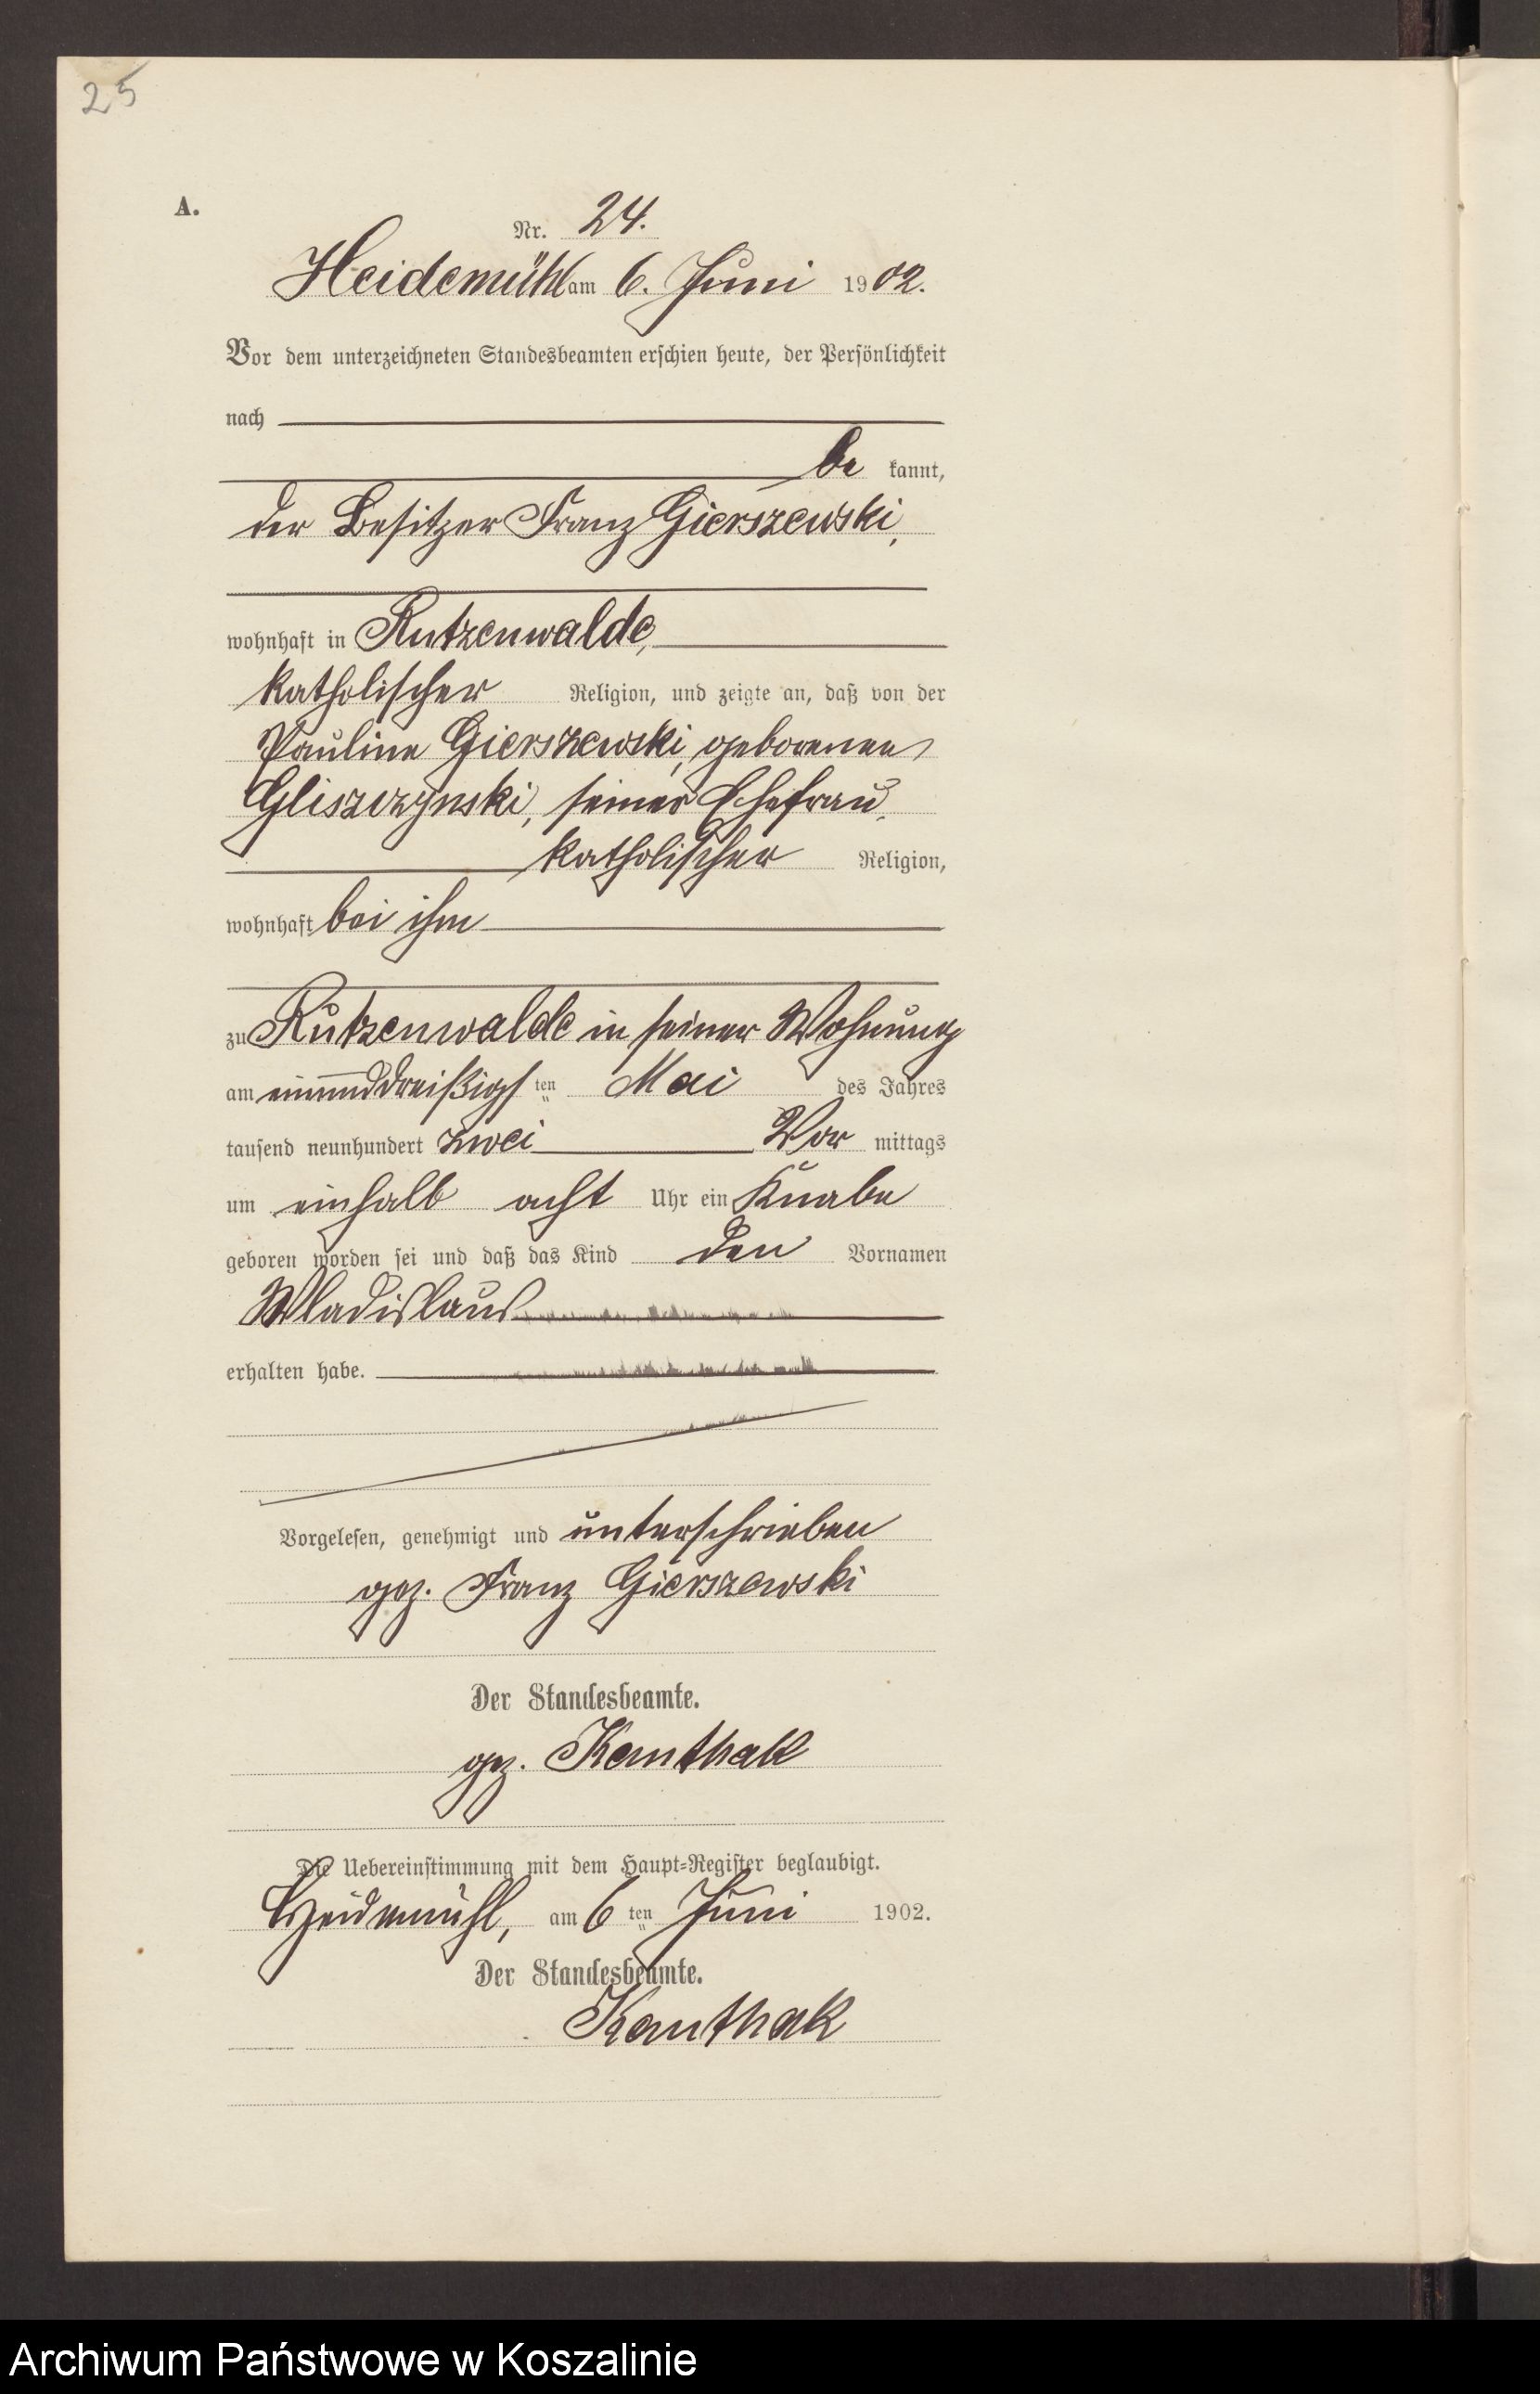 25
A.
Nr. 24.
Heidemühl am 6. Juni 1902.
Vor dem unterzeichneten Standesbeamten erschien heute, der Persönlichkeit
nach
be kannt,
der Besitzer Franz Gierszewski,
wohnhaft in Rutzenwalde,
katholischer Religion, und zeigte an, daß von der
Pauline Gierszewski, geborenen
Gliszczynski, seiner Ehefrau,
katholischer Religion,
wohnhaft bei ihm
zu Rutzenwalde in seiner Wohnung
am einunddreißigsten Mai des Jahres
tausend neunhundert zwei Vor mittags
um einhalb acht Uhr ein Knabe
geboren worden sei und daß das Kind den Vornamen
Wladislaus
erhalten habe.
Vorgelesen, genehmigt und unterschrieben
gez. Franz Gierszewski
Der Standesbeamte.
gez. Kanthak
Die Uebereinstimmung mit dem Haupt-Register beglaubigt.
Heidemühl, am 6ten Juni 1902.
Der Standesbeamte.
Kanthak
Archiwum Państwowe w Koszalinie